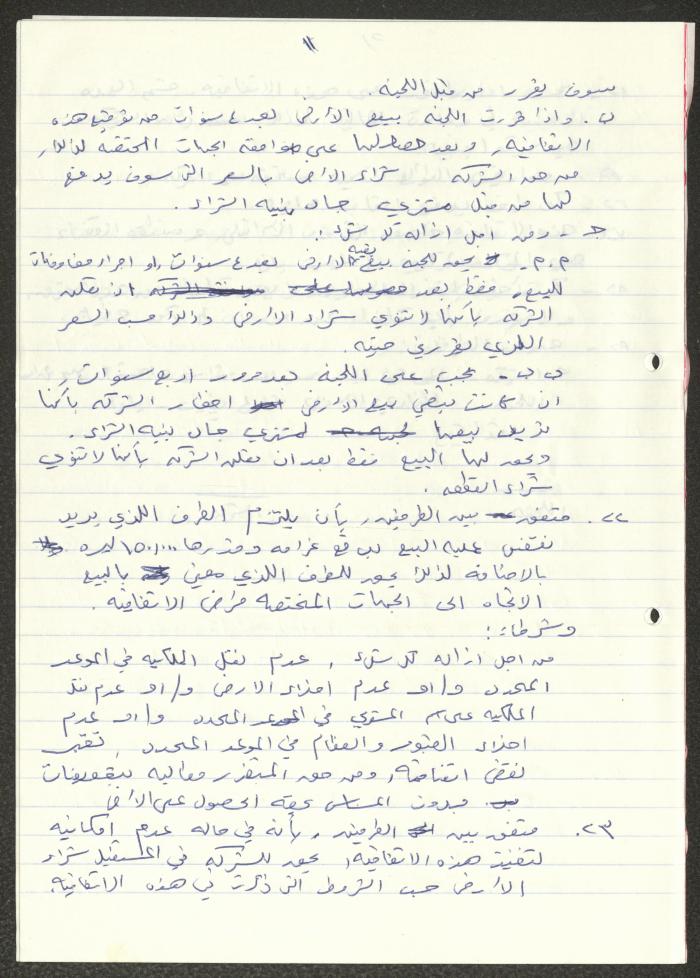 ١١
سوف يقرر من قبل اللجنه.
ب. واذا قررت اللجنه بيع الأرض بعد ٤ سنوات من توقيع هذه
الاتفاقيه, وبعد حصولها على موافقه الجهات المختصه لذلك,
من حق الشركه شراء الارض بالسعر التي سوف يدفع
لها من قبل مشتري جاد بنيه الشراء.
جـ - ومن اجل ازاله كل شك:
م م - يحق للجنه بيع بقيه الأرض بعد ٤ سنوات, او اجراء مفاوضات
للبيع, فقط بعد ان تعلن
الشركه بأنها لا تنوي شراء الأرض وذلك حسب السعر
اللذي تقرر في حينه.
ب ب - يجب على اللجنه بعد مرور اربع سنوات,
ان كانت تبغي بيع الارض اخطار الشركه بأنها
تريد بيعها لمشتري جاد بنيه الشراء.
ويحق لها البيع فقط بعد ان تعلن الشركه بأنها لا تنوي
شراء القطعه.
٢٢. متفق بين الطرفين, بأن يلتزم الطرف اللذي يريد
نقض عمليه البيع بدفع غرامه وقدرها ١٥٠،٠٠٠ ليره
بالاضافه لذلك يحق للطرف اللذي معني بالبيع
الاتجاه الى الجهات المختصه لفرض الاتفاقيه.
وشرطاء:
من اجل ازاله كل شك, عدم نقل الملكيه في الموعد
المحدد و/او عدم اخلاء الارض و/او عدم نقل
الملكيه على اسم المشتري في الموعد المحدد و/او عدم
اخلاء القبور والعظام في الموعد المحدد, تعتبر
نقض اتفاقيه, ومن حق المتضرر مطالبه بتعويضات
بدون المساس بحقه الحصول على الارض
٢٣. متفق بين الطرفين, بأنه في حاله عدم امكانيه
تنفيذ هذه الاتفاقيه, يحق للشركه في المستقبل شراء
الأرض حسب الشروط التي ذكرت في هذه الاتفاقيه.